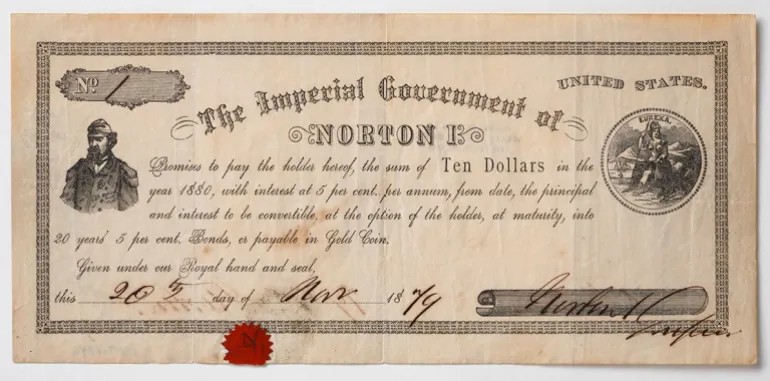 No 1
UNITED STATES.
The Imperial Government of
NORTON I.
EUREKA.
Promises to pay the holder hereof, the sum of Ten Dollars in the
year 1880, with interest at 5 per cent. per annum, from date, the principal
and interest to be convertible, at the option of the holder, at maturity, into
20 years' 5 per cent. Bonds, or payable in Gold Coin.
Given under our Royal hand and seal,
this 20th day of Nov 1879
Norton I
Emperor
N